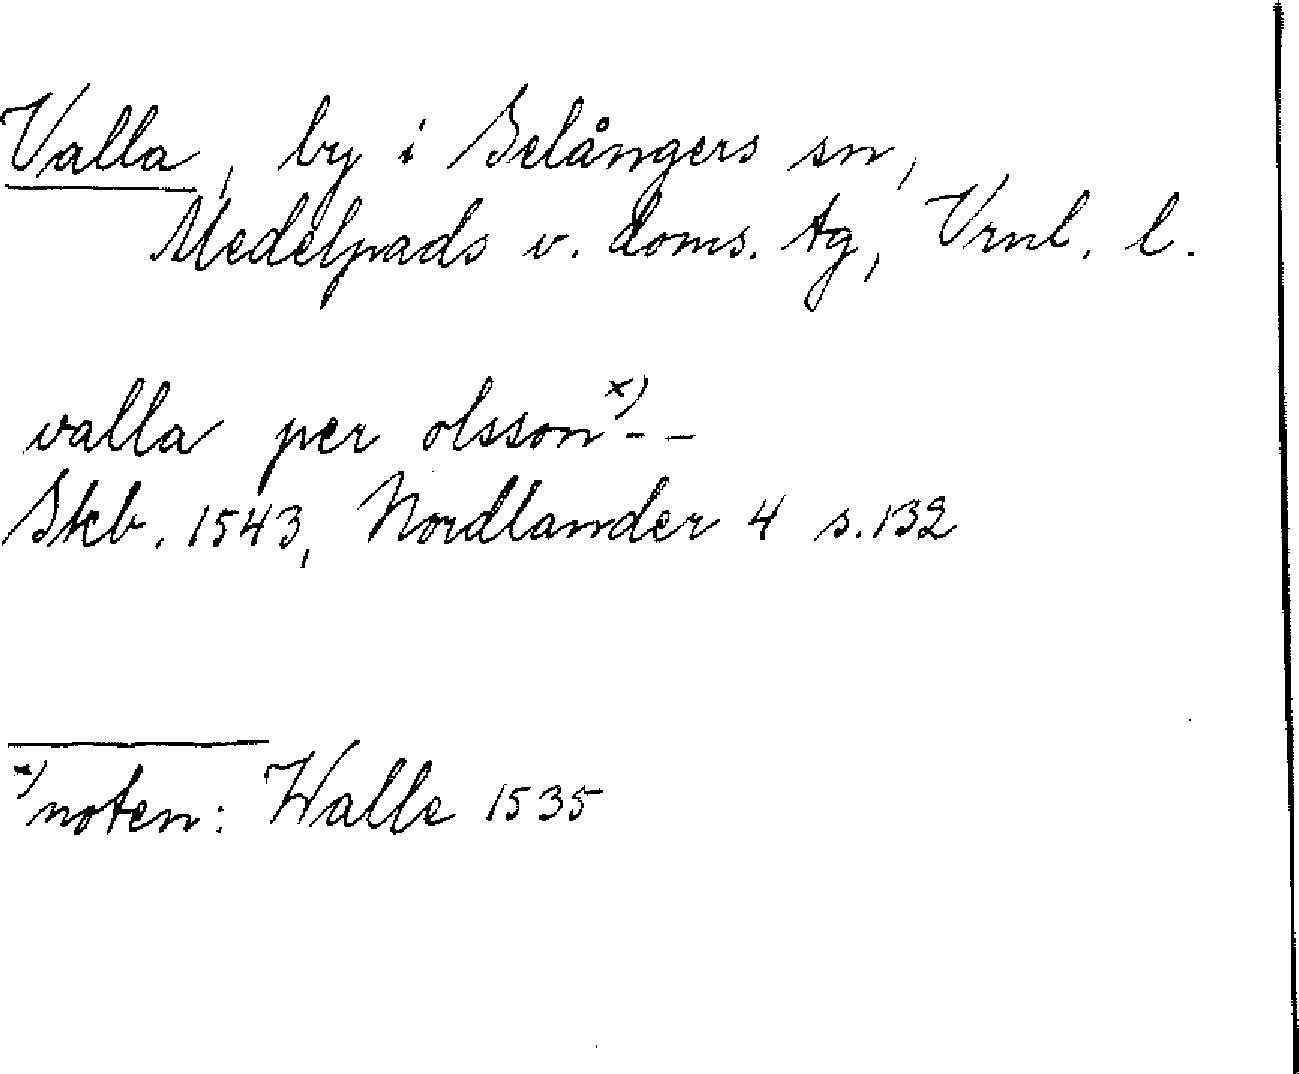 Valla, by i Selångers sn,
Medelpads v. doms. tg, Vrnl. l.
valla per olsson x) - -
Skb. 1543, Nordlander 4 s. 132
x) noten: Walle 1535